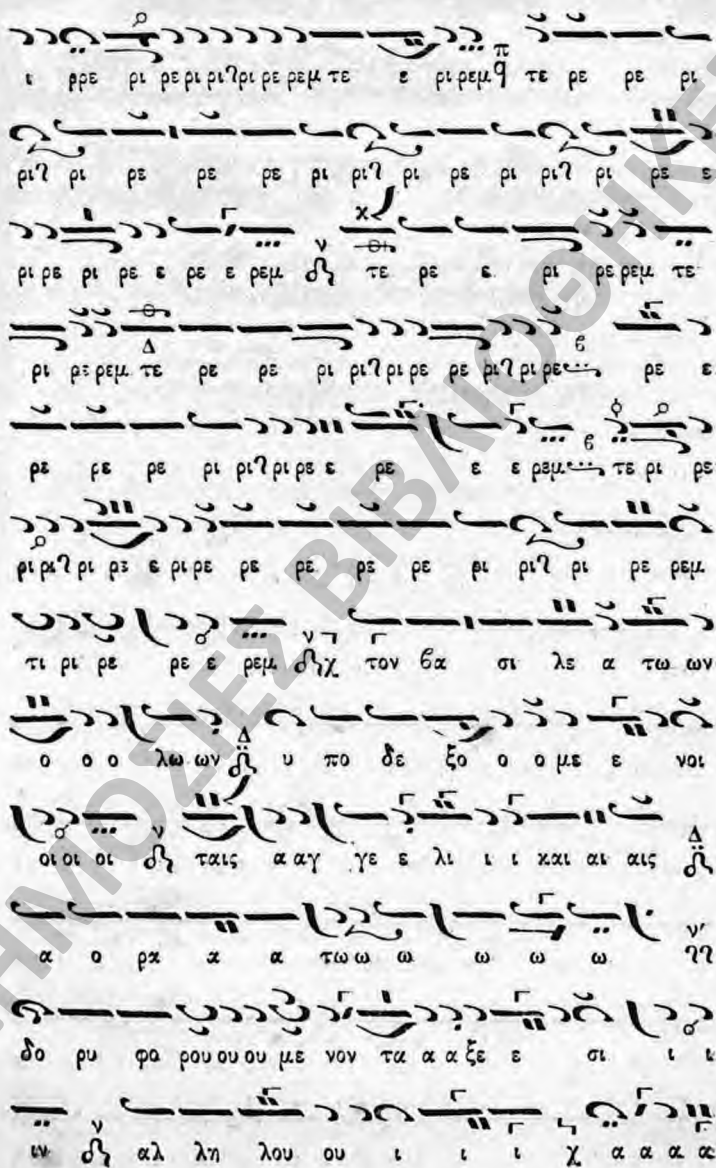 ι ρρε ρι ρε ρι ριʔρι ρε ρεμ τε ε ρι ρεμ π q τε ρε ρε ρι
ριʔ ρι ρε ρε ρε ρι ριʔ ρι ρε ρι ριʔ ρι ρε ε
ρι ρε ρι ρε ε ρε ε ρεμ ν τε ρε ε ρι ρε ρεμ τε
ρι ρε ρεμ τε Δ ρε ρε ρι ριʔ ρι ρε ρε ριʔ ρι ρε ϐ ρε ε
ρε ρε ρε ρι ριʔ ρι ρε ε ρε ε ε ρεμ ϐ τε ρι ρε
ρι ριʔ ρι ρε ε ρι ρε ρε ρε ρε ρε ρι ριʔ ρι ρε ρεμ
τι ρι ρε ρε ε ρεμ ν χ τον ϐα σι λε α τω ων
ο ο ο λω ων Δ υ πο δε ξο ο ο με ε νοι
οι οι οι ν ταις α αγ γε ε λι ι ι και αι αις Δ
α ο ρα α α τω ω ω ω ω ω ν' ʔʔ
δο ρυ φο ρου ου ου με νον τα α α ξε ε σι ι ι
ιν ν αλ λη λου ου ι ι ι χ α α α α
ΔΗΜΟΣΙΕΣ ΒΙΒΛΙΟΘΗΚΕ